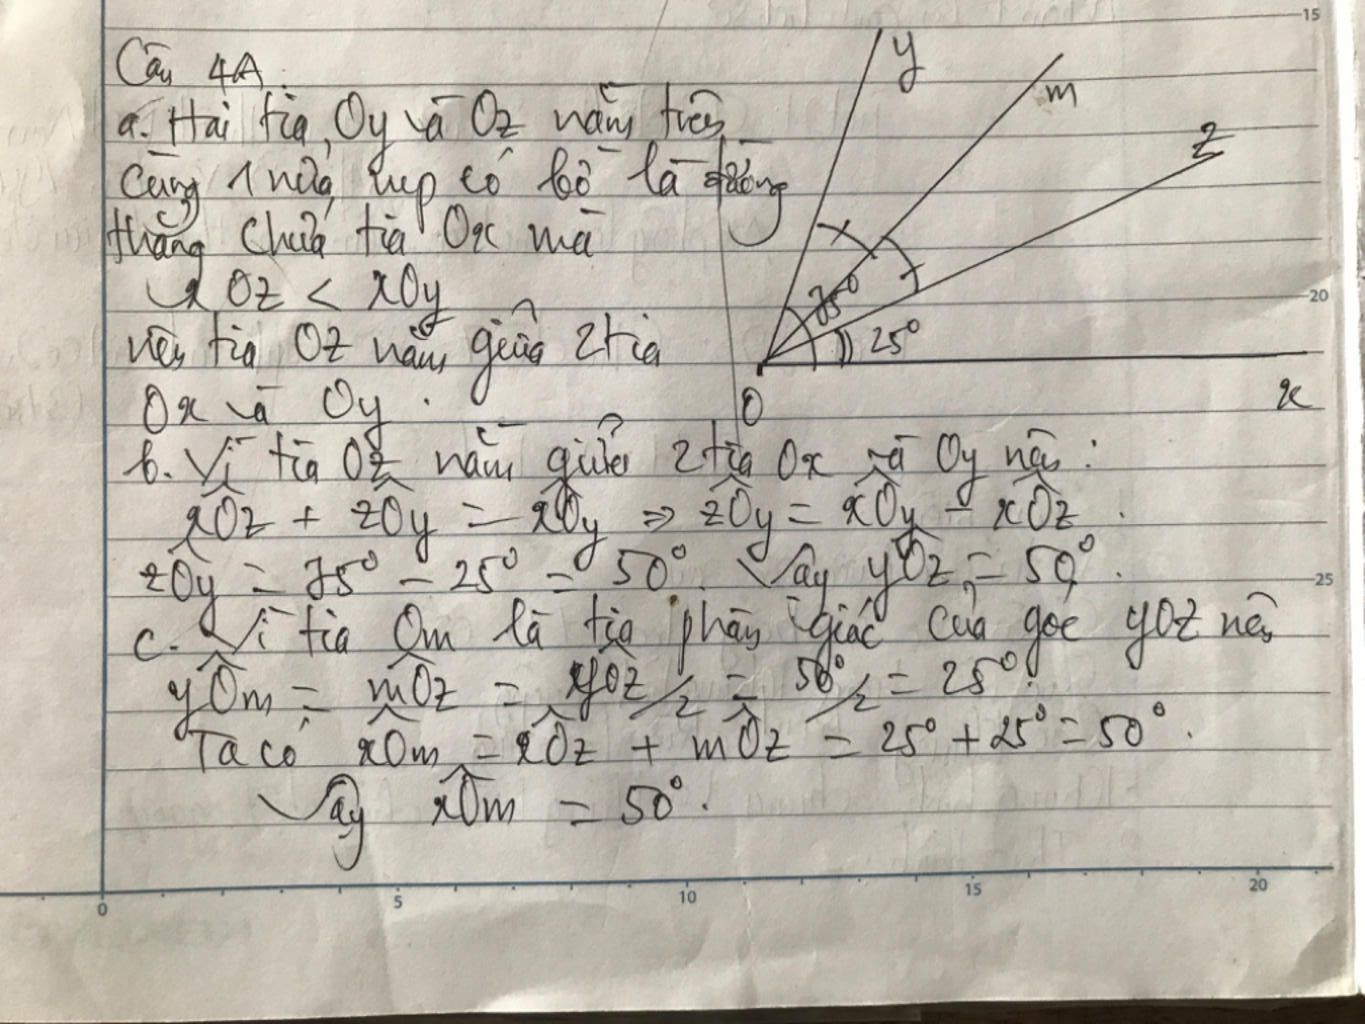 Câu 4A.
y
m
z
a. Hai tia Oy và Oz nằm trên
cùng 1 nửa mp có bờ là đường
thẳng chứa tia Ox mà
xOz < xOy
nên tia Oz nằm giữa 2 tia
Ox và Oy.
75°
25°
O
x
b. Vì tia Oz nằm giữa 2 tia Ox và Oy nên:
xÔz + zÔy = xÔy => zÔy = xÔy - xÔz.
zÔy = 75° - 25° = 50°. Vậy yÔz = 50°.
c. Vì tia Om là tia phân giác của góc yOz nên
yÔm = mÔz = yÔz/2 = 50°/2 = 25°.
Ta có xÔm = xÔz + mÔz = 25° + 25° = 50°.
Vậy xÔm = 50°.
15
20
25
0 5 10 15 20